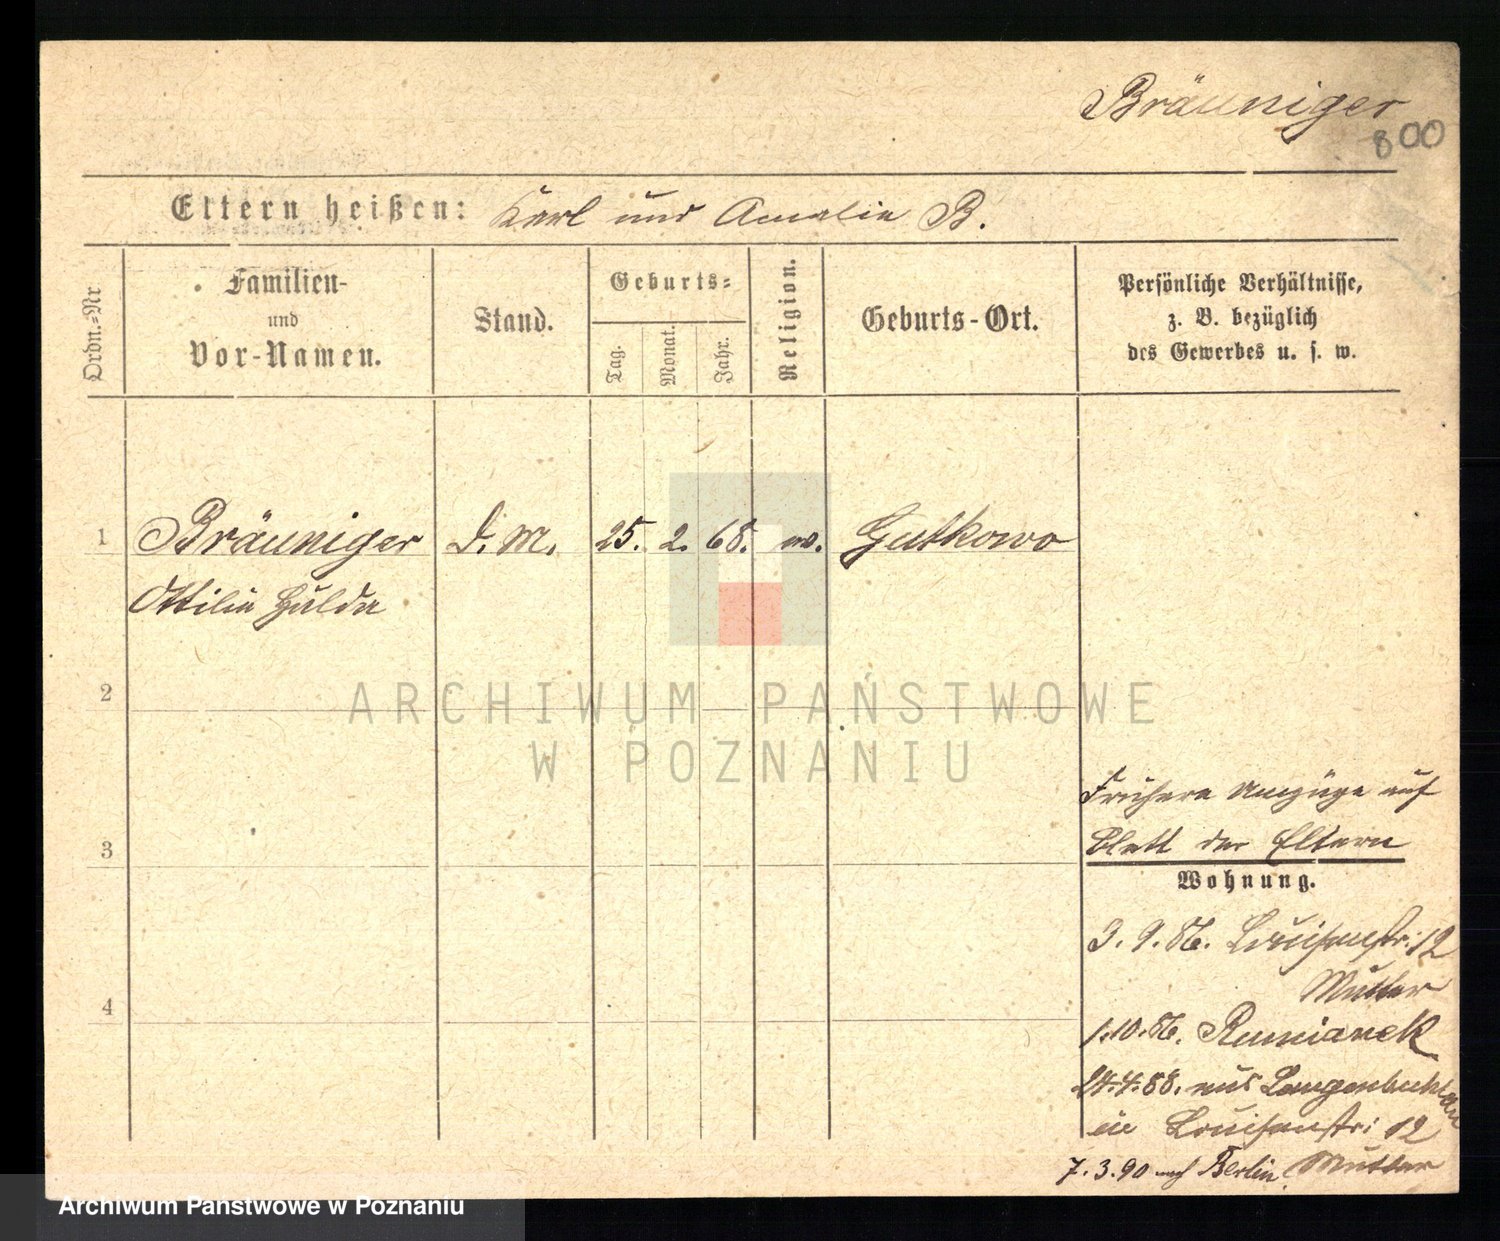 Bräuniger
800
Eltern heißen: Karl und Amalie B.
Ordn.-Nr
Familien-
und
Vor-Namen.
Stand.
Geburts-
Tag.
Monat.
Jahr.
Religion.
Geburts-Ort.
Persönliche Verhältnisse,
z. B. bezüglich
des Gewerbes u. s. w.
1 Bräuniger D. M. 25. 2. 68. ev. Gutkowo
Ottilie Hulda
2
ARCHIWUM PAŃSTWOWE
W POZNANIU
Frühere Umzüge auf
3 Blatt der Eltern
Wohnung.
3. 9. 86. Louisenstr: 12
Mutter
4
1.10.86. Rumianek
24.4.88. aus
in Louisenstr: 12
7.3.90 nach Berlin. Mutter
Archiwum Państwowe w Poznaniu